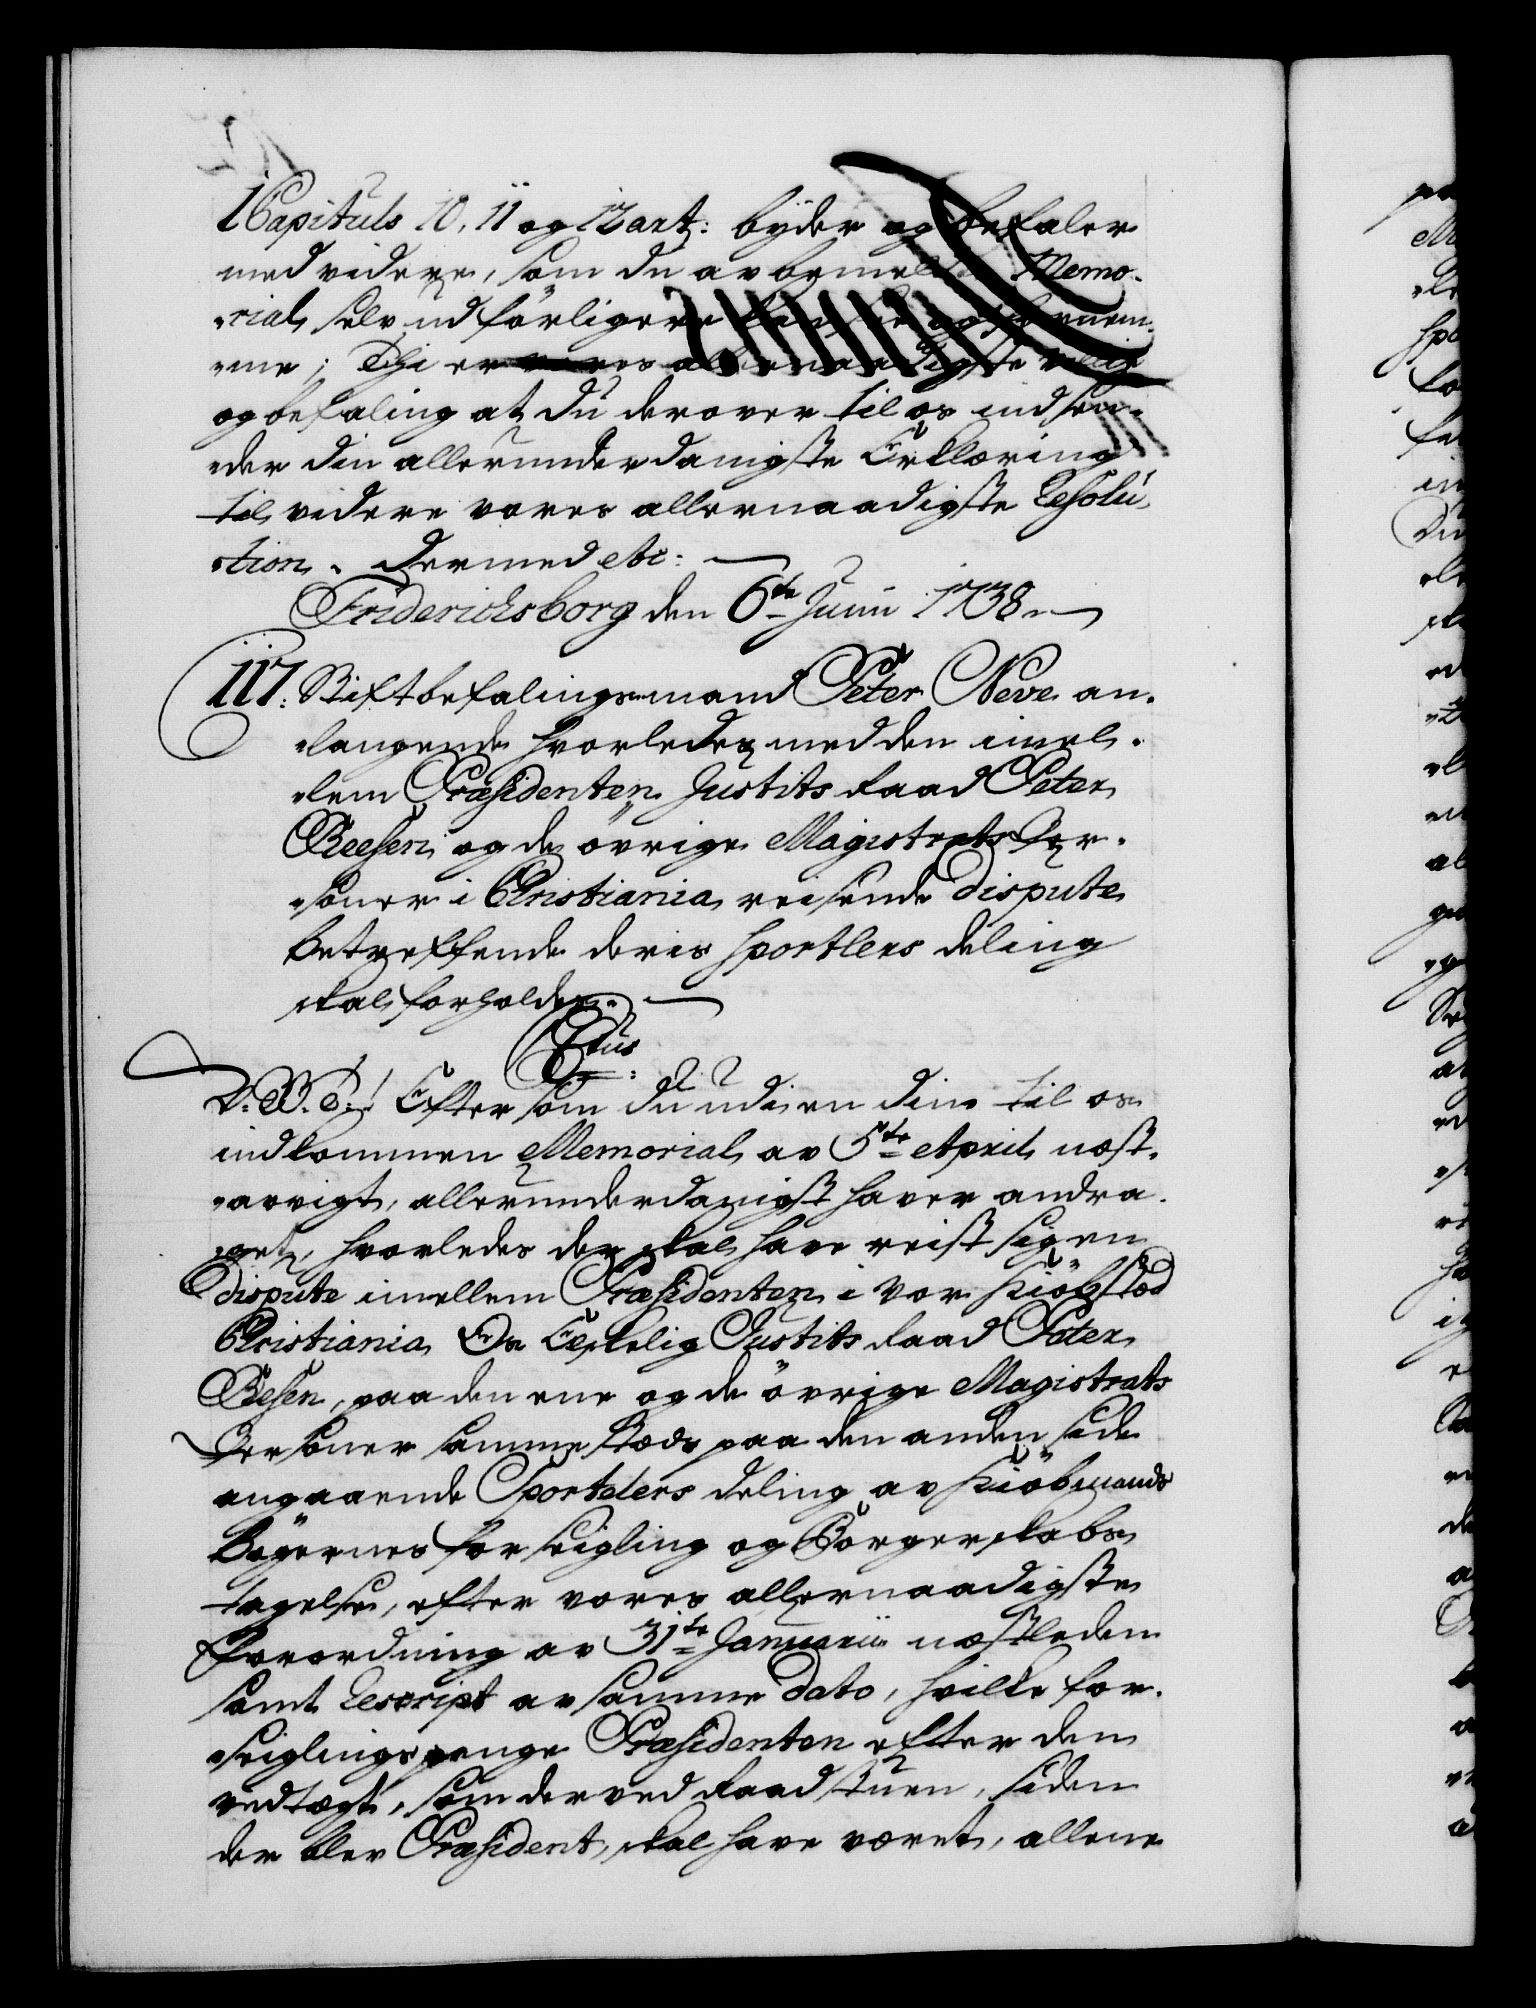 1 Capituls 10, 11 og 12 art: byder og befaler
med videre, som du av bemelte Memo-
rial selv udförligere kand see og fornem-
me; Thi er vores allernaadigste villie
og befaling at du derover til os indsen-
der din allerunderdanigste Erklæring
til videre vores allernaadigste Resolu-
tion. Dermed etc:
Friderichsborg den 6te Junii 1738.
117. Stiftbefalingsmand Peter Neve an-
langende hvorledes med den imel-
lem Præsidenten Justits Raad Peter
Reesen og de övrige Magistrats Per-
soner i Christiania reisende dispute
betreffende deris sportlers deling
skal forholdes.
Ctus
V. B. T.! Eftersom du udi en din til os
indkommen Memorial av 5te April næst-
avvigt, allerunderdanigst haver andra-
get, hvorledes der skal have reist sig en
dispute imellem Præsidenten i vor Kiöbstæd
Christiania Os Elskelig Justits Raad Peter
Resen, paa den ene og de övrige Magistrats
Personer sammestæds paa den anden side
angaaende Sportelers deling av Kiöbmands
bögernes forseigling og Borgerskabs
tagelse, efter vores allernaadigste
forordning av 31te Januarii næstleden
samt Rescript av samme dato, hvilke for-
seiglings penge Præsidenten efter den
vedtægt, som der ved Raadstuen, siden
der blev Præsident, skal have været, allene